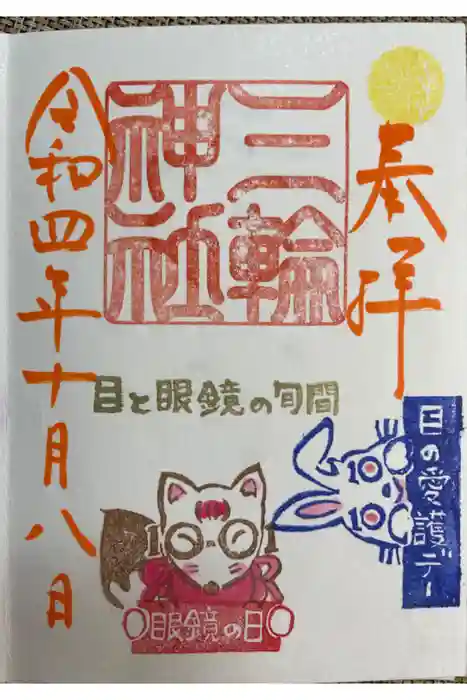 奉拝
三輪
神社
令和四年十月八日
目と眼鏡の旬間
目の愛護デー
眼鏡の日